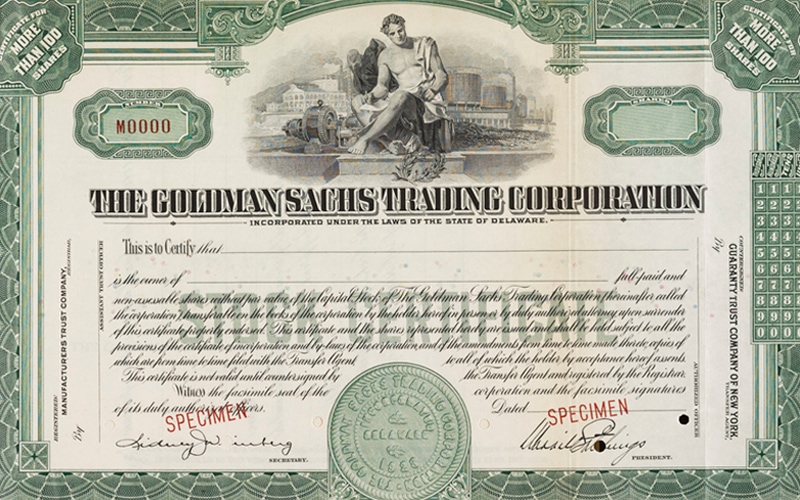 CERTIFICATE FOR
MORE
THAN 100
SHARES
CERTIFICATE FOR
MORE
THAN 100
SHARES
NUMBER
M0000
SHARES
THE GOLDMAN SACHS TRADING CORPORATION
INCORPORATED UNDER THE LAWS OF THE STATE OF DELAWARE.
This is to Certify that
is the owner of full-paid and
non-assessable shares without par value of the Capital Stock of The Goldman Sachs Trading Corporation (hereinafter called
the corporation), transferable on the books of the corporation by the holder hereof in person or by duly authorized attorney upon surrender
of this certificate properly endorsed. This certificate and the shares represented hereby are issued and shall be held subject to all the
provisions of the certificate of incorporation and by-laws of the corporation, and of the amendments from time to time made thereto, copies of
which are from time to time filed with the Transfer Agent, to all of which the holder by acceptance hereof assents.
This certificate is not valid until countersigned by the Transfer Agent and registered by the Registrar.
Witness the facsimile seal of the corporation and the facsimile signatures
of its duly authorized officers. Dated
SPECIMEN
SPECIMEN
SECRETARY.
PRESIDENT.
REGISTERED:
MANUFACTURERS TRUST COMPANY,
REGISTRAR,
By
ASSISTANT TRUST OFFICER
COUNTERSIGNED:
GUARANTY TRUST COMPANY OF NEW YORK,
TRANSFER AGENT,
By
AUTHORIZED OFFICER
DELAWARE
1 1 1
2 2 2
3 3 3
4 4 4
5 5 5
6 6 6
7 7 7
8 8 8
9 9 9
0 0 0